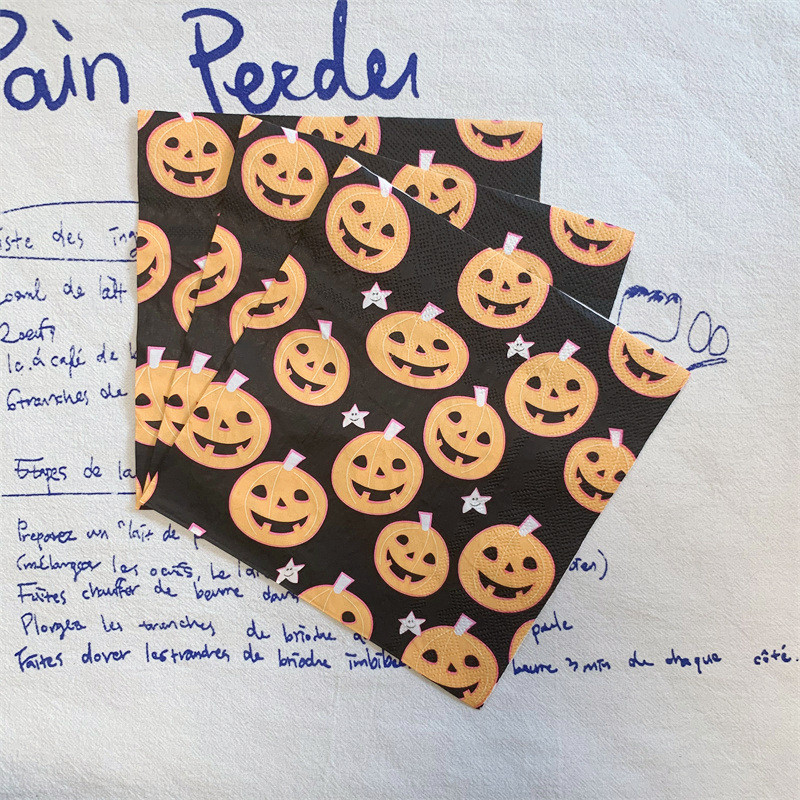 Pain Perdu
iste des ing
de lait
2 oeufs
1 c. à café de
6 tranches de
Etapes de la
Preparez un "lait de
(mélanger les oeufs, le lai
Faites chauffer de beurre dans
Plongez les tranches de brioche poele
Faites dorer les tranches de brioche imbibée beurre 3 min de chaque côté.